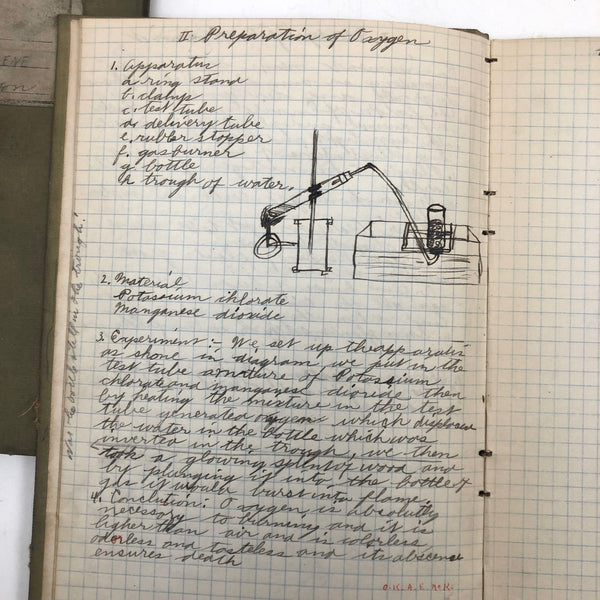 II Preparation of Oxygen
1. Apparatus
a. ring stand
b. clamp
c. test tube
d. delivery tube
e. rubber stopper
f. gas burner
g. bottle
h. trough of water.
2. Material
Potassium chlorate
Manganese dioxide
3. Experiment :- We set up the apparatus
as shone in diagram, we put in the
test tube a mature of Potassium
chlorate and manganese dioxide then
by heating the mixture in the test
tube generated oxygen which displaced
the water in the bottle which was
inverted in the trough, we then
took a glowing splent of wood and
by plunging it into the bottle of
gas it would burst into flame.
4. Conclution: Oxygen, is absolutly
necessary to burning and it is
ligher than air and is colorless
odorless and tasteless and its abscence
ensures death
O.K. A.E. McK.
the bottle still in the trough!
ENE